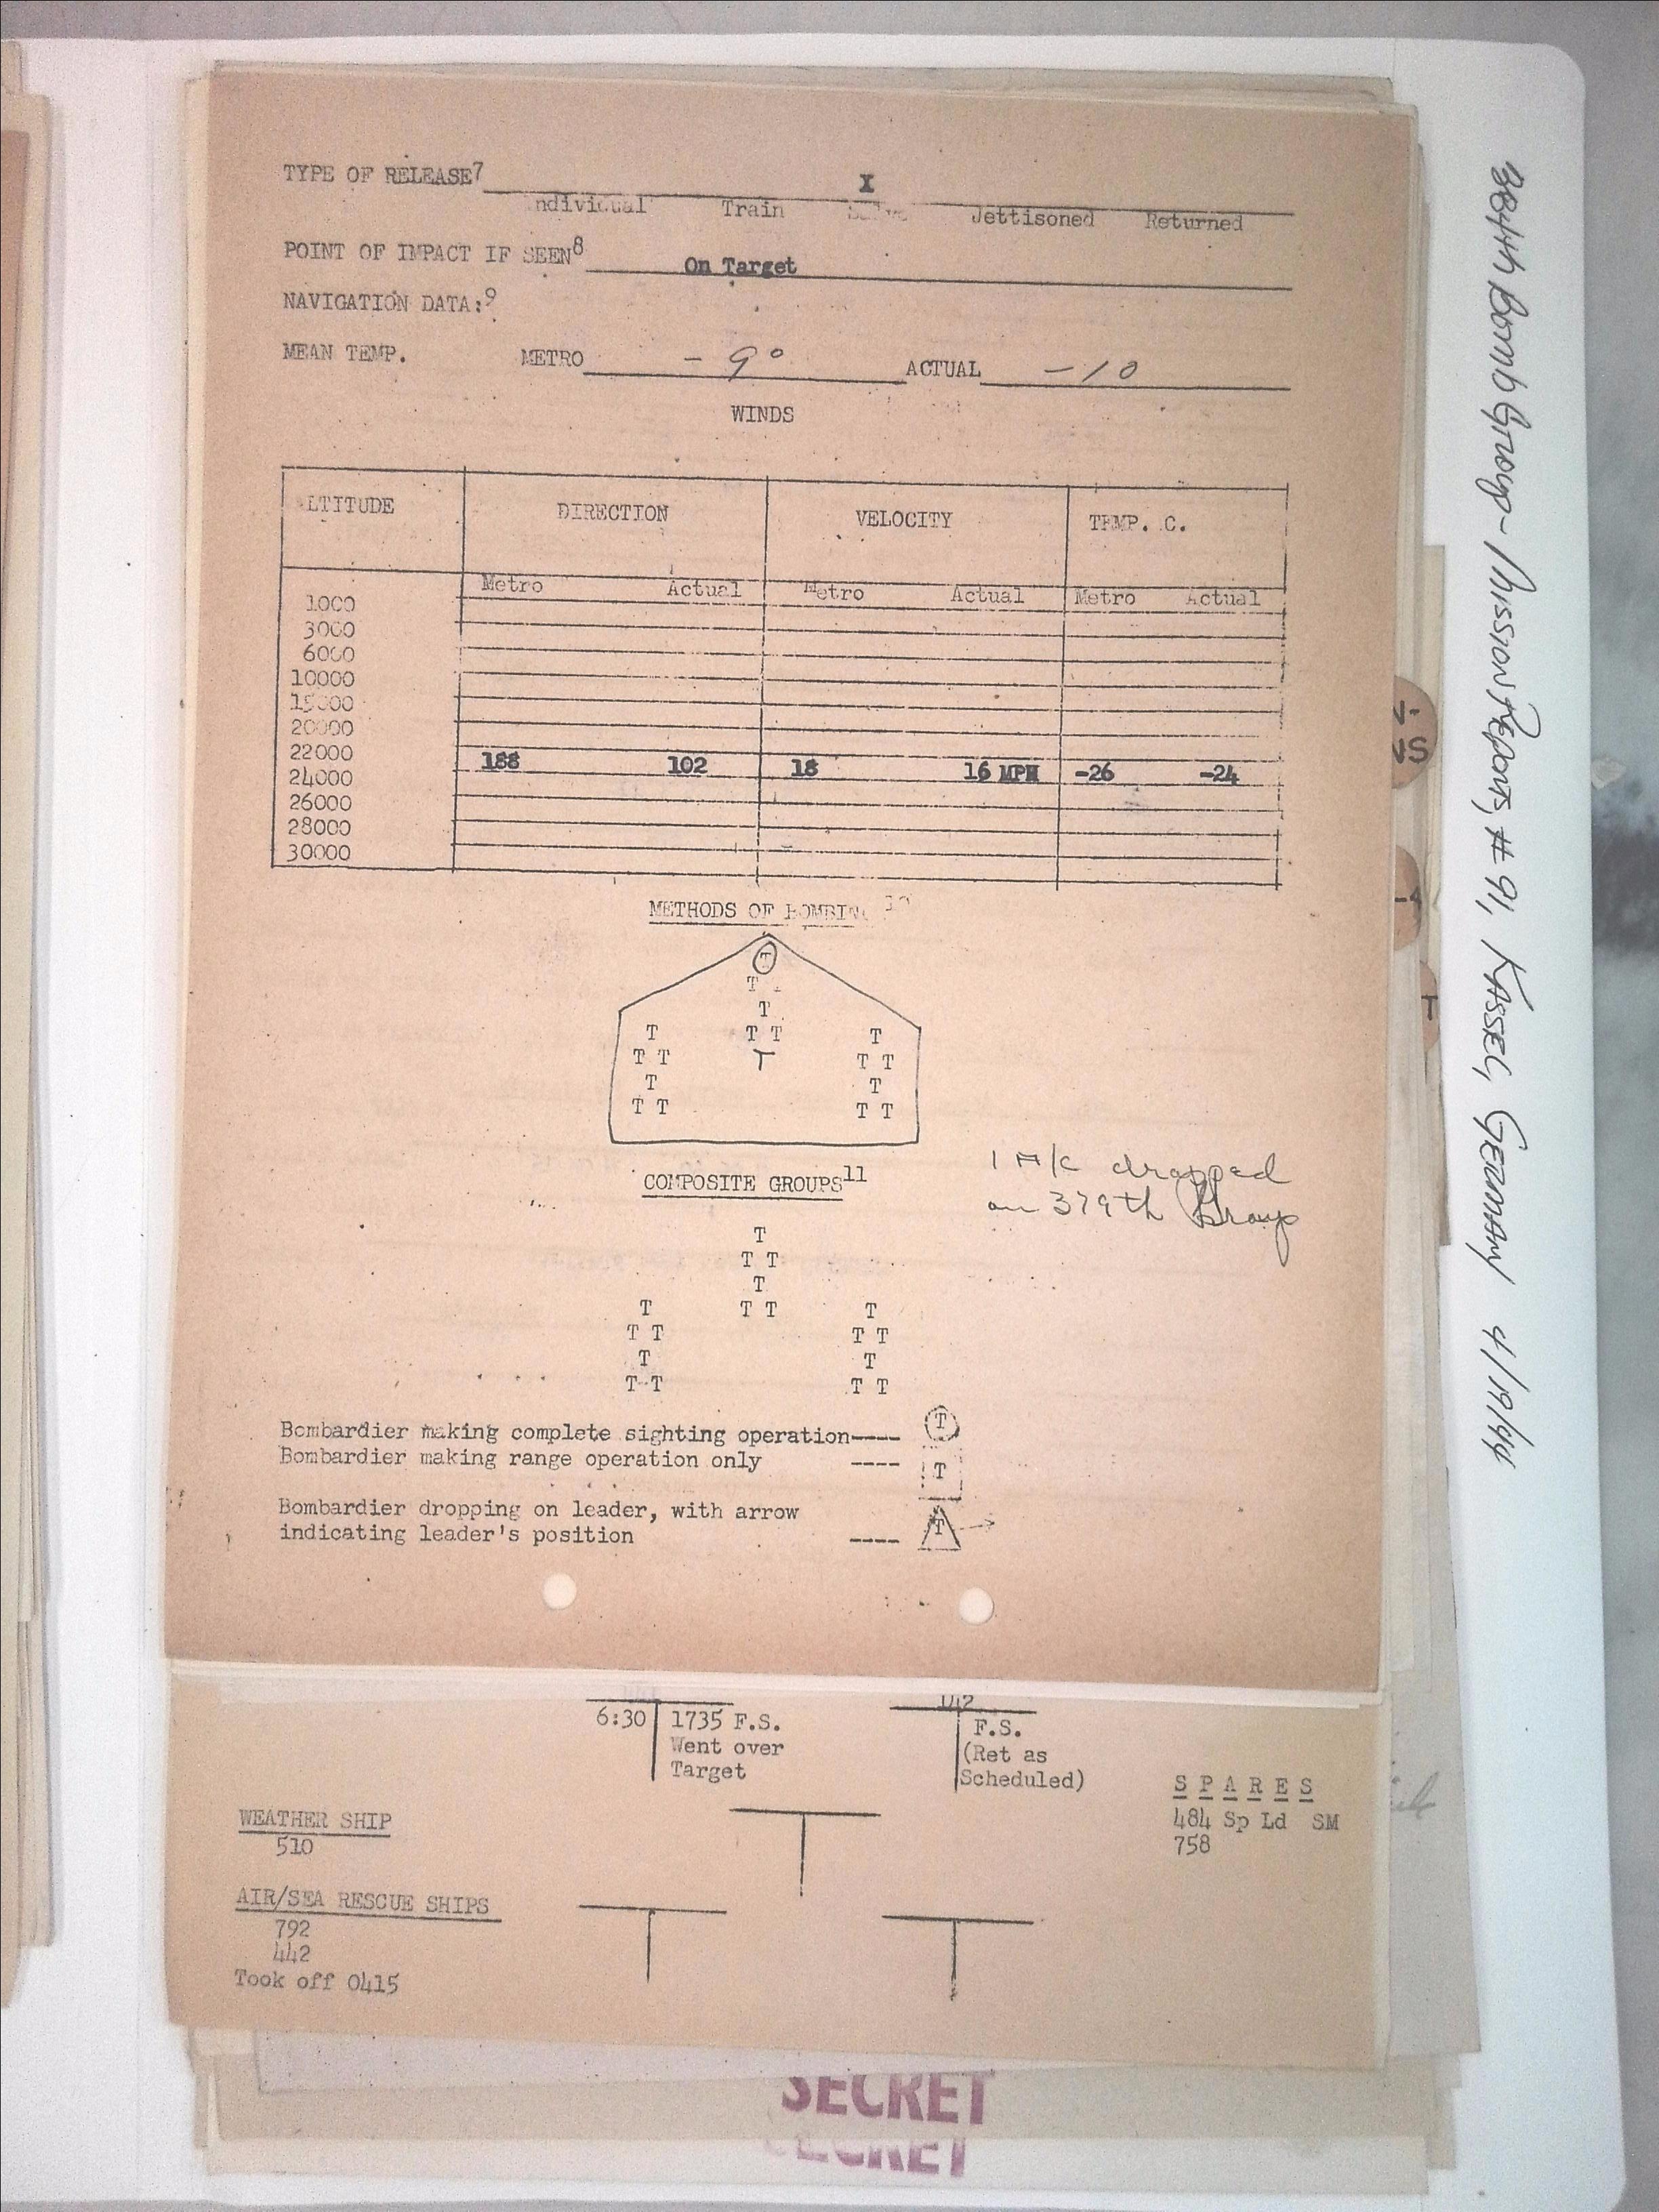 TYPE OF RELEASE7 X
Individual Train Salvo Jettisoned Returned
POINT OF IMPACT IF SEEN8 On Target
NAVIGATION DATA:9
MEAN TEMP. METRO - 9° ACTUAL -10
WINDS
ALTITUDE DIRECTION VELOCITY TEMP. C.
Metro Actual Metro Actual Metro Actual
1000
3000
6000
10000
15000
20000
22000
24000 188 102 18 16 MPH -26 -24
26000
28000
30000
METHODS OF BOMBING 10
T
T
T
T T T T
T T T T T
T T
T T T T
COMPOSITE GROUPS11
1 A/C dropped
on 379th Group
T
T T
T
T T T T
T T T T
T T
T T T T
Bombardier making complete sighting operation---- T
Bombardier making range operation only ---- T
Bombardier dropping on leader, with arrow
indicating leader's position ---- T
6:30 1735 F.S.
Went over
Target
142
F.S.
(Ret as
Scheduled)
SPARES
484 Sp Ld SM
758
WEATHER SHIP
510
AIR/SEA RESCUE SHIPS
792
442
Took off 0415
SECRET
SECRET
384th Bomb Group - Mission Reports, # 91, KASSEL, GERMANY 4/19/44
N-
NS
-4
T